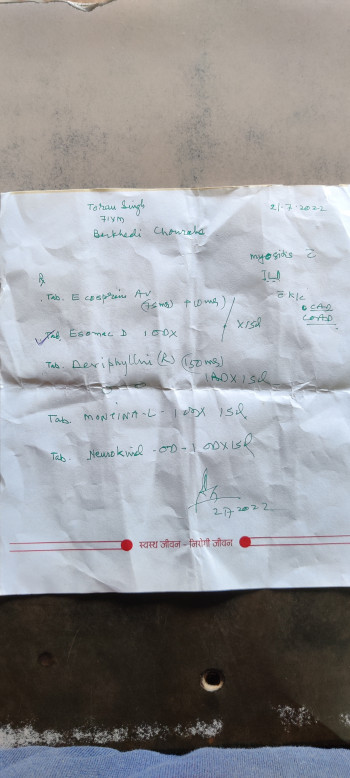 Toran Singh
71 Y M
21-7-2022
Barkhedi Chourah
myositis c̄
ILD
c̄ k/c
CAD
COPD
R
Tab. Ecosprin AV
(75mg) + 10mg)
Tab. Esomac D 1 OD X
X 15d
Tab. Deriphyllin (R) (150mg)
1 BD X 15d
Tab. MONTINA-L - 1 OD X 15d
Tab. Neurokind-OD - 1 OD X 15d
21.7.2022
स्वस्थ जीवन - निरोगी जीवन